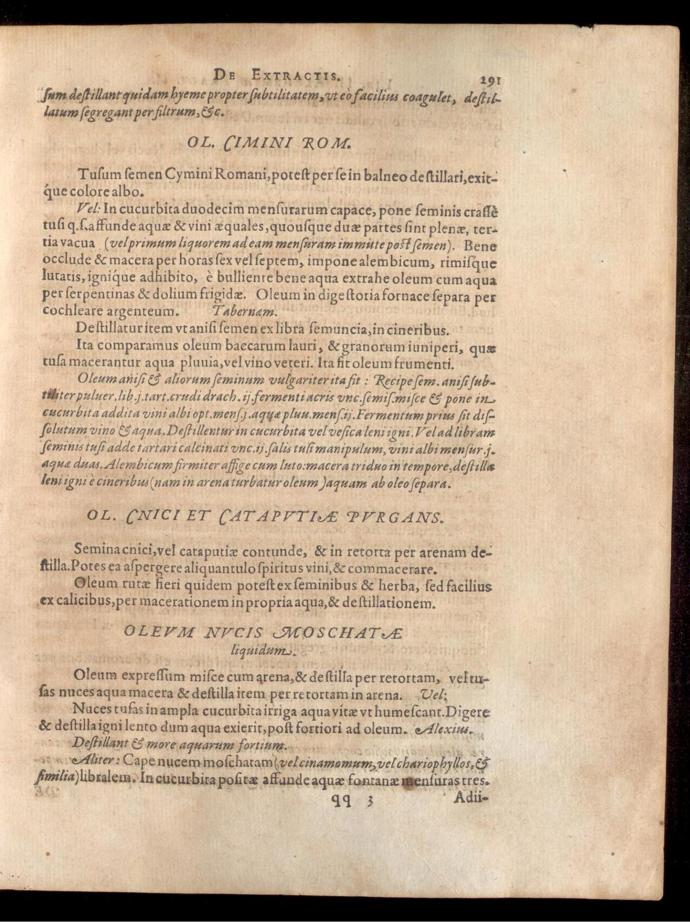 DE EXTRACTIS. 291
ſum deſtillant quidam hyeme propter ſubtilitatem, vt eo facilius coagulet, deſtil-
latum ſegregant per filtrum, &c.
OL. CIMINI ROM.
Tuſum ſemen Cymini Romani, poteſt per ſe in balneo deſtillari, exit-
q́ue colore albo.
Vel: In cucurbita duodecim menſurarum capace, pone ſeminis craſsè
tuſi q.ſ. affunde aquæ & vini æquales, quouſque duæ partes ſint plenæ, ter-
tia vacua (vel primum liquorem ad eam menſuram immitte poſt ſemen). Bene
occlude & macera per horas ſex vel ſeptem, impone alembicum, rimiſque
lutatis, igniq́ue adhibito, è bulliente bene aqua extrahe oleum cum aqua
per ſerpentinas & dolium frigidæ. Oleum in digeſtoria fornace ſepara per
cochleare argenteum. Tabernam.
Deſtillatur item vt aniſi ſemen ex libra ſemuncia, in cineribus.
Ita comparamus oleum baccarum lauri, & granorum iuniperi, quæ
tuſa macerantur aqua pluuia, vel vino veteri. Ita fit oleum frumenti.
Oleum aniſi & aliorum ſeminum vulgariter ita fit: Recipe ſem. aniſi ſub-
tiliter puluer. lib. j. tart. crudi drach. ij. fermenti acris vnc. ſemiſ. miſce & pone in
cucurbita addita vini albi opt. menſ. j. aquæ pluu. menſ. ij. Fermentum prius ſit diſ-
ſolutum vino & aqua. Deſtillentur in cucurbita vel veſica leni igni. Vel ad libram
ſeminis tuſi adde tartari calcinati vnc. ij. ſalis tuſi manipulum, vini albi menſur. j.
aquæ duas. Alembicum firmiter affige cum luto: macera triduo in tempore, deſtilla
leni igni è cineribus (nam in arena turbatur oleum) aquam ab oleo ſepara.
OL. CNICI ET CATAPVTIÆ PVRGANS.
Semina cnici, vel cataputiæ contunde, & in retorta per arenam de-
ſtilla. Potes ea aſpergere aliquantulo ſpiritus vini, & commacerare.
Oleum rutæ fieri quidem poteſt ex ſeminibus & herba, ſed facilius
ex calicibus, per macerationem in propria aqua, & deſtillationem.
OLEVM NVCIS MOSCHATÆ
liquidum.
Oleum expreſſum miſce cum arena, & deſtilla per retortam, vel tu-
ſas nuces aqua macera & deſtilla item per retortam in arena. Vel:
Nuces tuſas in ampla cucurbita irriga aqua vitæ vt humeſcant. Digere
& deſtilla igni lento dum aqua exierit, poſt fortiori ad oleum. Alexius.
Deſtillant & more aquarum fortium.
Aliter: Cape nucem moſchatam (vel cinamomum, vel chariophyllos, &
ſimilia) libralem. In cucurbita poſitæ affunde aquæ fontanæ menſuras tres.
qq 3 Adii-